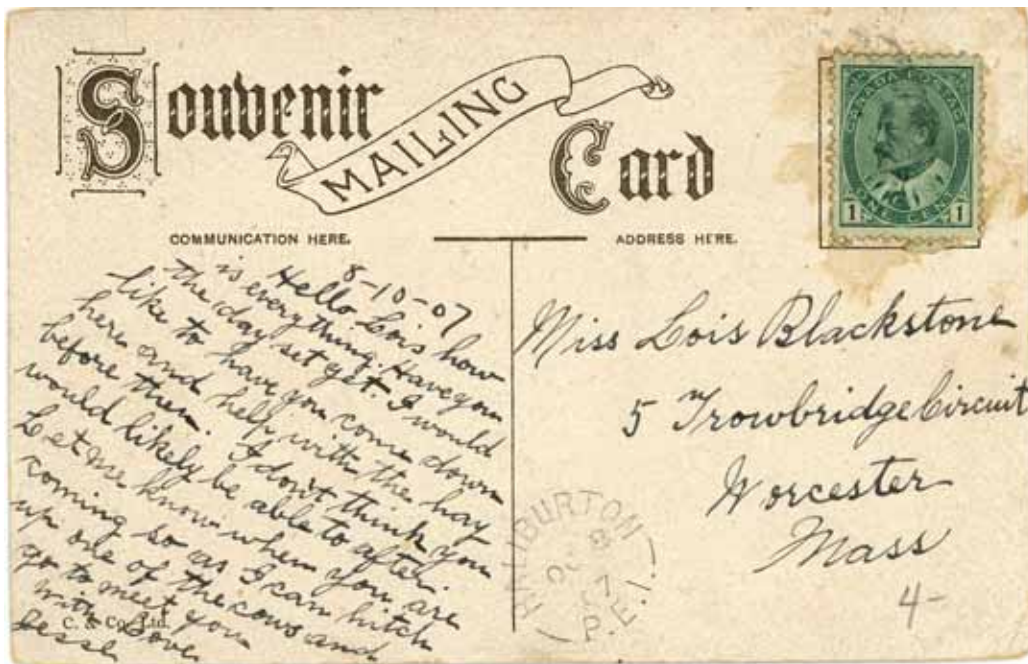 Souvenir
MAILING
Card
CANADA POSTAGE
1 ONE CENT 1
COMMUNICATION HERE.
ADDRESS HERE.
8-10-07
Hello Lois how
is everything. Have you
the day set yet. I would
like to have you come down
here and help with the hay
before then. I don't think you
would likely be able to after.
Let me know when you are
coming so as I can hitch
up one of the cows and
go to meet you
with Love
Jesse
C. & Co. Ltd.
Miss Lois Blackstone
5 Trowbridge Circuit
Worcester
Mass
4-
HALIBURTON
8
7
P.E.I.